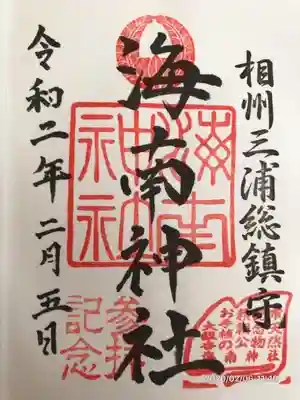 相州三浦総鎮守
海南神社
令和二年二月五日
海南神社
参拝記念